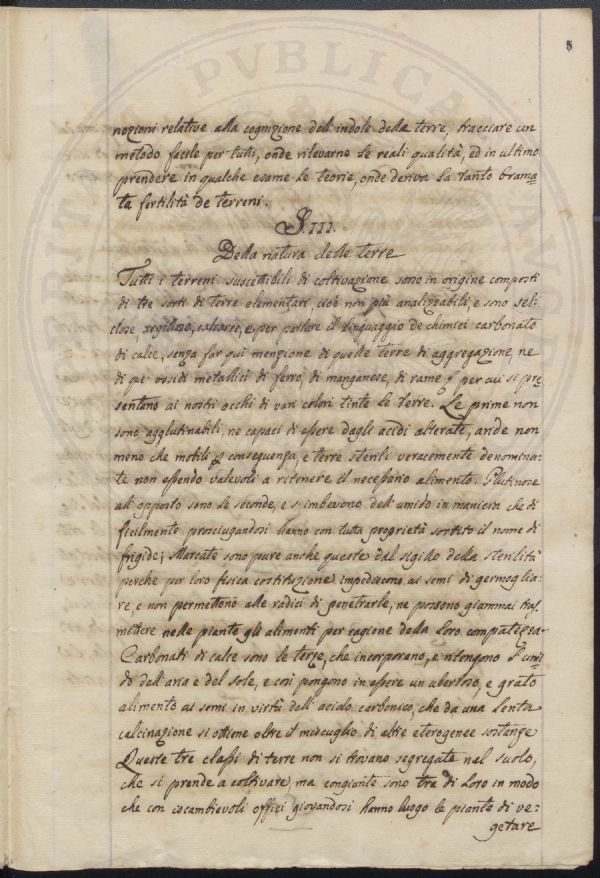 5
nozioni relative alla cognizione dell'indole delle terre, tracciare un
metodo facile per tutti, onde rilevarne le reali qualità, ed in ultimo
prendere in qualche esame le teorie, onde deriva la tanto brama-
ta fertilità de terreni.
§. III.
Della natura delle terre
Tutti i terreni suscettibili di coltivazione sono in origine composti
di tre sorti di terre elementari cioè non più analizzabili, e sono seli-
ciose, argillose, calcaree, e per parlare il linguaggio de chimici carbonato
di calce, senza far qui menzione di quelle terre di aggregazione, ne
di que' ossidi metallici di ferro, di manganese, di rame per cui si pre-
sentano ai nostri occhi di vari colori tinte le terre. Le prime non
sono agglutinabili, ne capaci di essere dagli acidi alterate, ande non
meno che mobili p conseguenza, e terre sterili veracemente denomina-
te non essendo valevoli a ritenere il necessario alimento. Glutinose
all'opposto sono le seconde, e s'imbevono dell'umido in maniera che di-
ficilmente prosciugandosi hanno con tutta proprietà sortito il nome di
frigide; Marcate sono pure anche queste dal sigillo della sterilità
perche per loro fisica costituzione impediscono ai semi di germoglia-
re, e non permettono alle radici di penetrarle, ne possono giammai tras-
mettere nelle piante gli alimenti per ragione della loro compatezza.
Carbonati di calce sono le terze, che incorporano, e ritengono l'umi-
do dell'aria e del sole, e così pongono in essere un ubertoso, e grato
alimento ai semi in virtù dell'acido carbonico, che da una lenta
calcinazione si ottiene oltre il miscuglio di altre eterogenee sostanze
Queste tre classi di terre non si trovano segregate nel suolo,
che si prende a coltivare, ma congiunte sono tra di loro in modo
che con iscambievoli offici giovandosi hanno luogo le piante di ve-
getare
PVBLICA